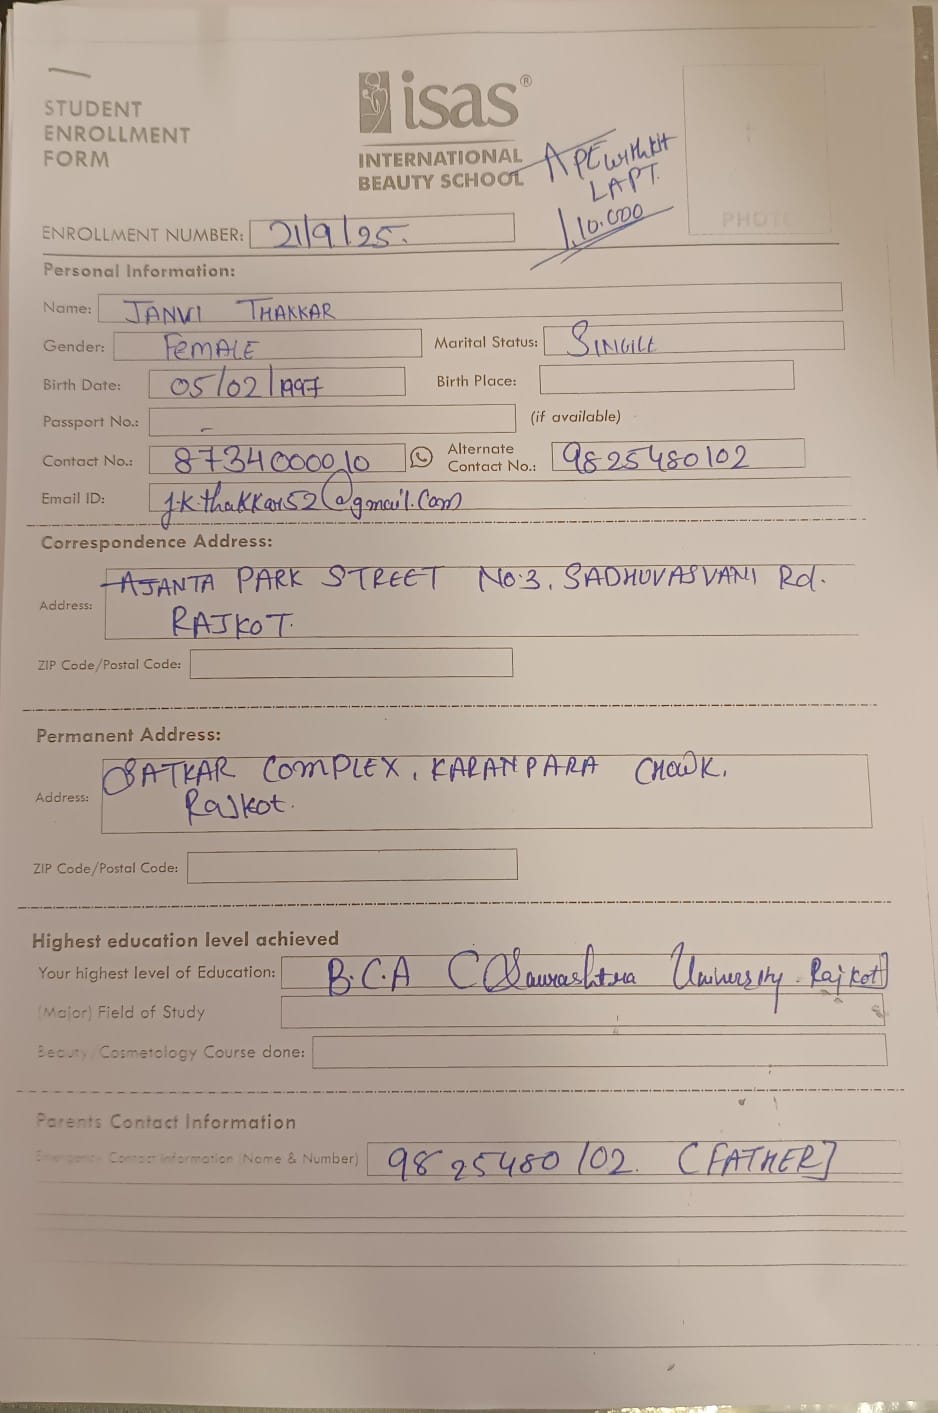 STUDENT
ENROLLMENT
FORM
isas®
INTERNATIONAL
BEAUTY SCHOOL
APE with kit
LAPT.
1,10.000
PHOTO
ENROLLMENT NUMBER: 21/9/25.
Personal Information:
Name: JANVI THAKKAR
Gender: FEMALE Marital Status: SINGLE
Birth Date: 05/02/1997 Birth Place:
Passport No.: – (if available)
Contact No.: 8734000010 Alternate Contact No.: 9825480102
Email ID: j.k.thakkar52@gmail.com
Correspondence Address:
Address: AJANTA PARK STREET No.3, SADHUVASVANI Rd.
RAJKOT.
ZIP Code/Postal Code:
Permanent Address:
Address: SATKAR COMPLEX, KARANPARA CHOWK,
Rajkot.
ZIP Code/Postal Code:
Highest education level achieved
Your highest level of Education: B.C.A (Saurashtra University. Rajkot]
(Major) Field of Study
Beauty/Cosmetology Course done:
Parents Contact Information
Emergency Contact Information (Name & Number) 9825480102. (FATHER]